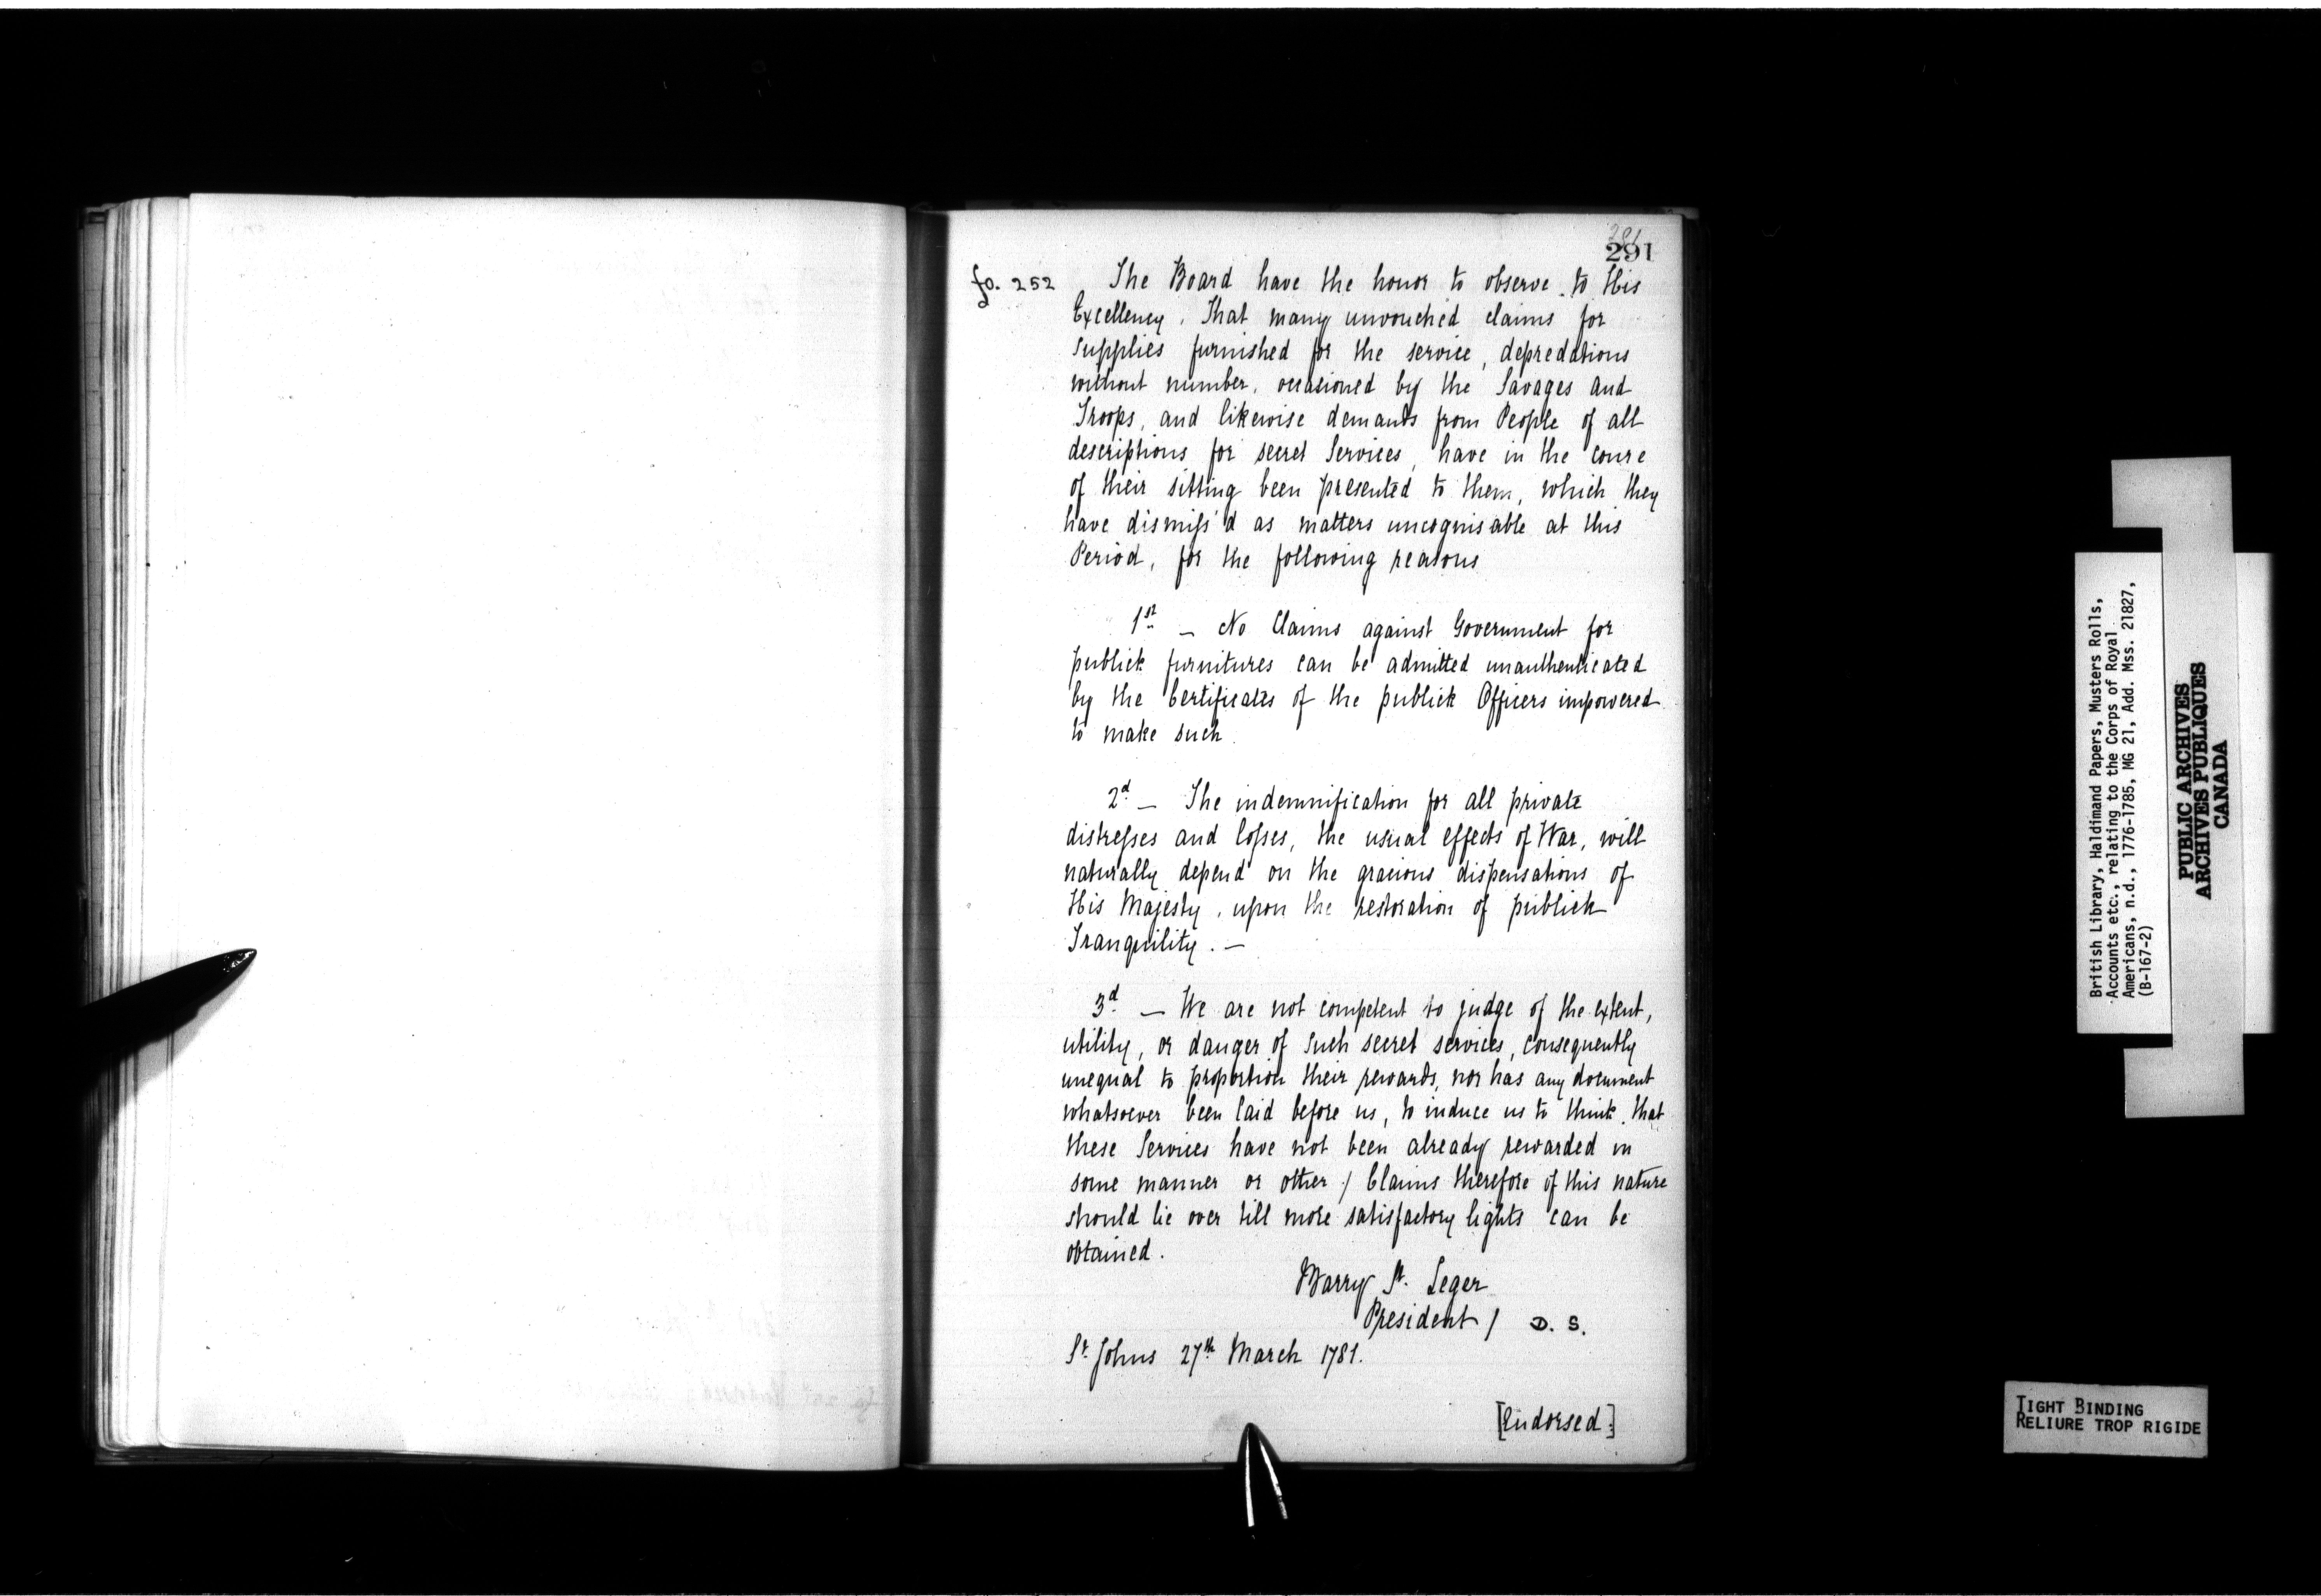 291
fo. 252 The Board have the honor to observe to His
Excellency, That many unvouched claims for
supplies furnished for the service, depredations
without number, occasioned by the Savages and
Troops, and likewise demands from People of all
descriptions for secret Services, have in the course
of their sitting been presented to them, which they
have dismiss'd as matters uncognisable at this
Period, for the following reasons
1st — No Claims against Government for
publick furnitures can be admitted unauthenticated
by the Certificates of the publick Officers impowered
to make such.
2d — The indemnification for all private
distresses and losses, the usual effects of War, will
naturally depend on the gracious dispensations of
His Majesty, upon the restoration of publick
Tranquility. —
3d — We are not competent to judge of the extent,
utility, or danger of such secret services, consequently
unequal to proportion their rewards, nor has any document
whatsoever been laid before us, to induce us to think, that
these Services have not been already rewarded in
some manner or other / Claims therefore of this nature
should lie over till more satisfactory lights can be
obtained.
Barry St. Leger
President / D. S.
St. Johns 27th March 1781.
[Endorsed.]
British Library, Haldimand Papers, Musters Rolls,
Accounts etc., relating to the Corps of Royal
Americans, n.d., 1776-1785, MG 21, Add. Mss. 21827,
(B-167-2)
PUBLIC ARCHIVES
ARCHIVES PUBLIQUES
CANADA
TIGHT BINDING
RELIURE TROP RIGIDE